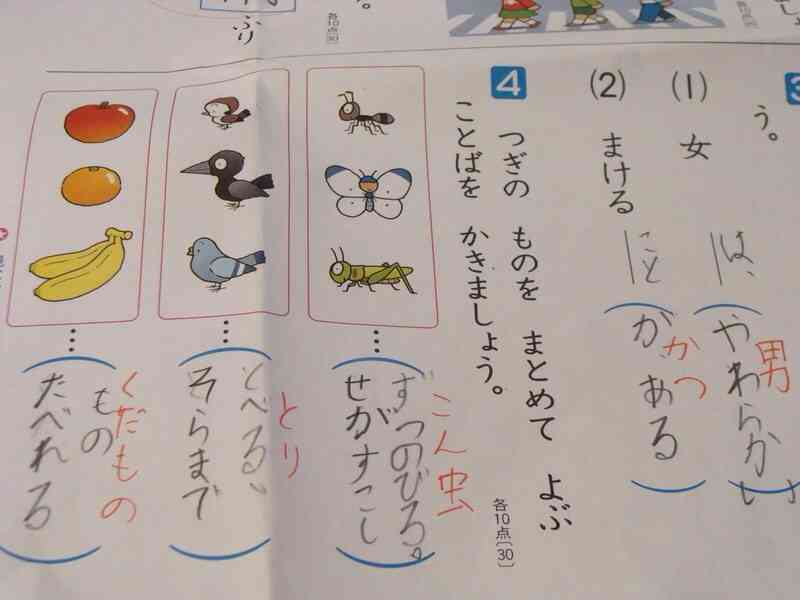 ふり
各10点[30]
う。
(1) 女 は、(やわらかい
男
(2) まける (がある)
かつ
4 つぎの ものを まとめて よぶ
ことばを かきましょう。
各10点[30]
こん虫
…(せがすこし
ずつのびる。)
とり
…(そらまで
とべる、)
くだもの
…(たべれる
もの)